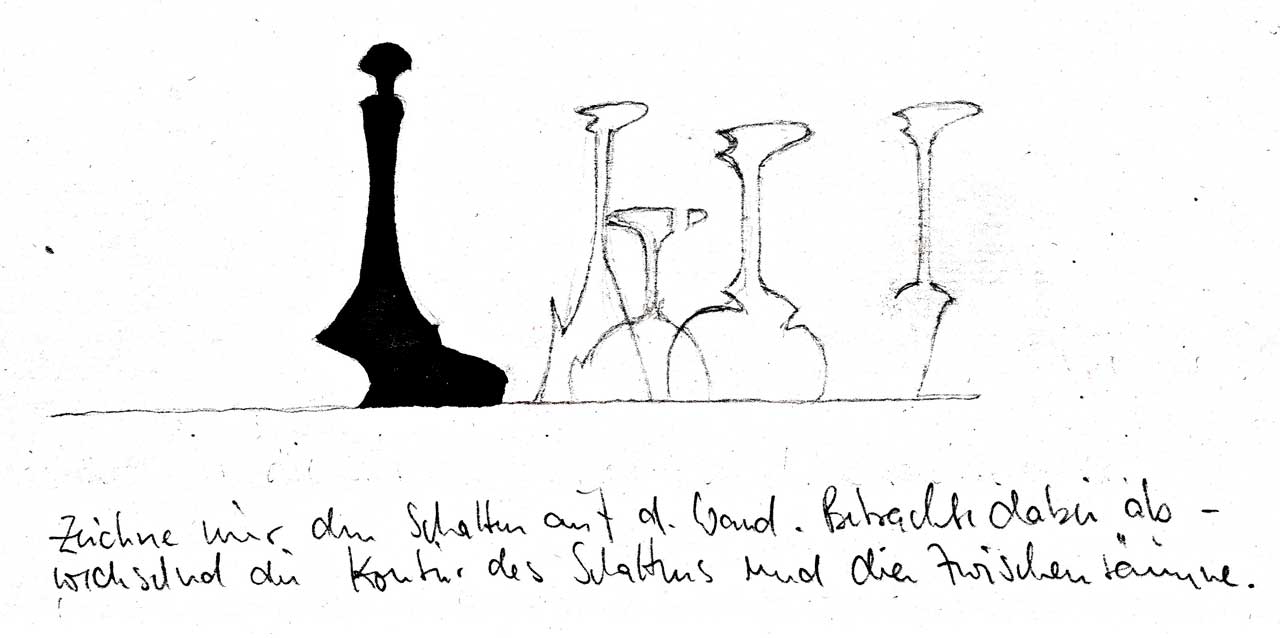 Zeichne nur den Schatten auf d. Wand. Betrachte dabei ab -
wechselnd die Kontur des Schattens und die Zwischenräume.